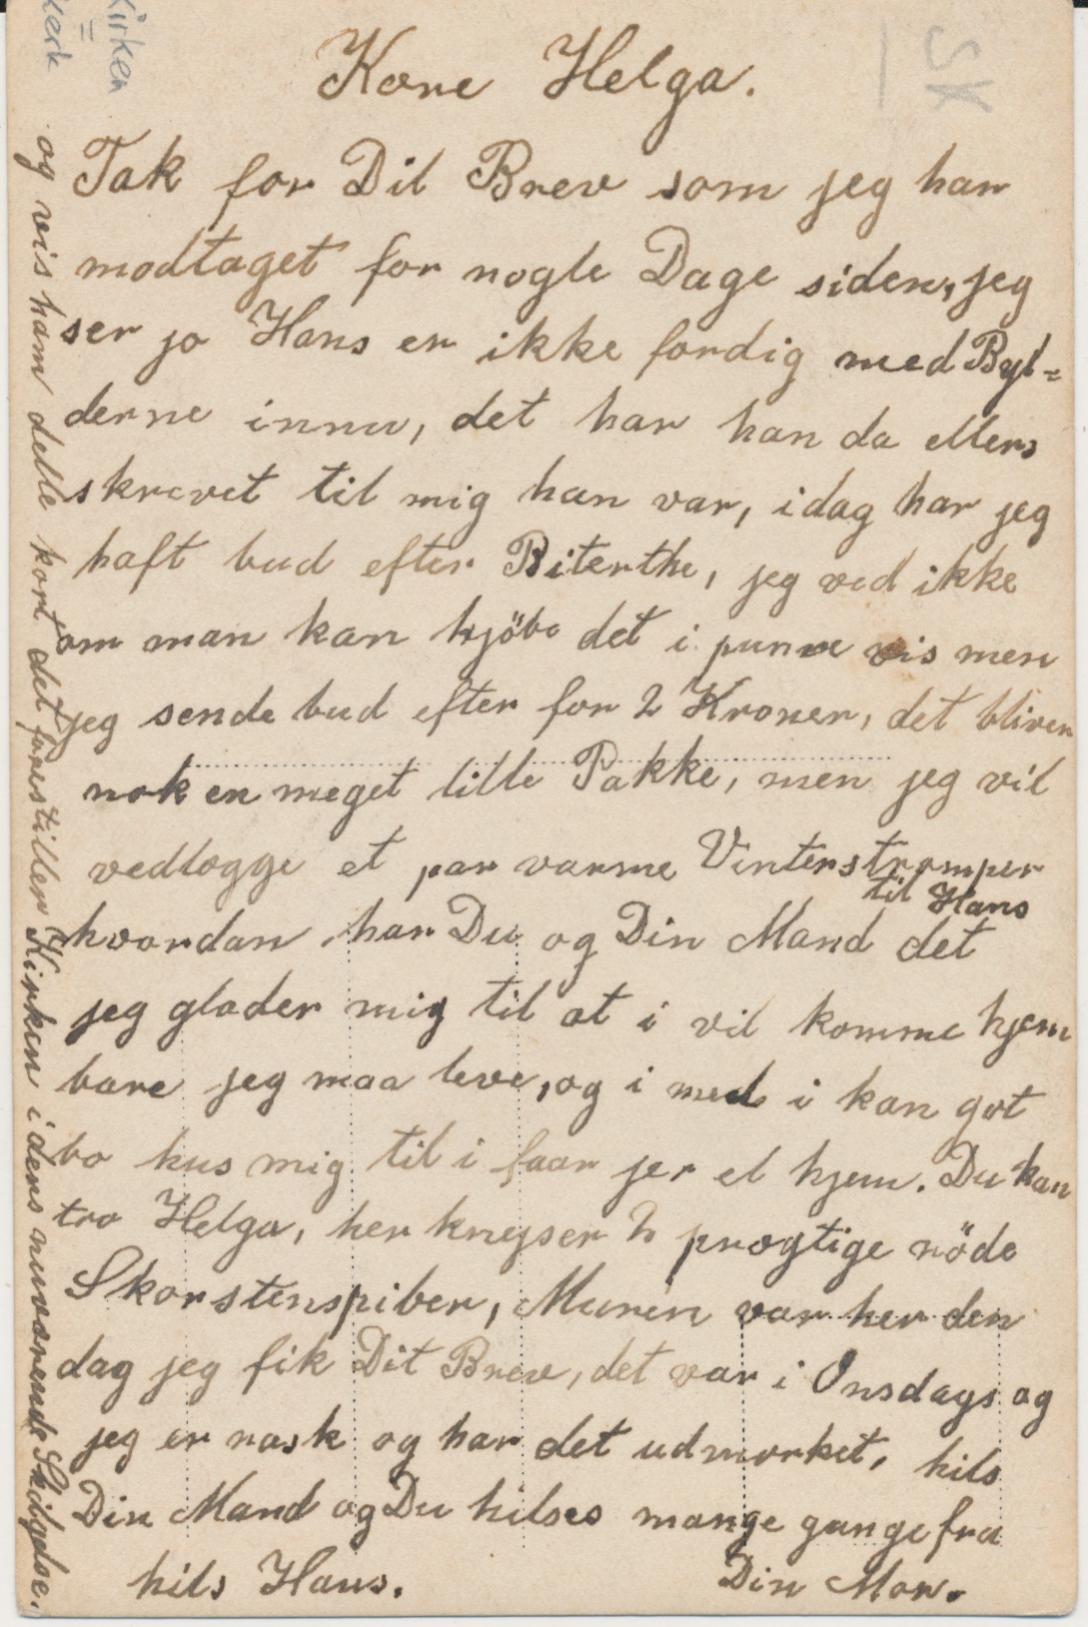 Kære Helga.
Tak for Dit Brev som jeg har
modtaget for nogle Dage siden, jeg
ser jo Hans er ikke færdig med Byl=
derne innu, det har han da ellers
skrevet til mig han var, i dag har jeg
haft bud efter Riterthe, jeg ved ikke
om man kan kjöbe det i punde vis men
jeg sende bud efter for 2 Kroner, det bliver
nok en meget lille Pakke, men jeg vil
vedlægge et par varme Vinterstrømper
til Hans
hvordan har Du og Din Mand det
jeg glæder mig til at i vil komme hjem
bare jeg maa leve, og i med i kan got
bo hus mig til i faar jer et hjem. Du kan
tro Helga, her knejser 2 prægtige röde
Skorstenspiber, Muren var her den
dag jeg fik Dit Brev, det var i Onsdags og
jeg er rask og har det udmærket, hils
Din Mand og Du hilses mange gange fra
hils Hans. Din Mor.
og vis ham dette kort det forestiller Kirken i dens nuværende Skikkelse.
Kirken
=
SK